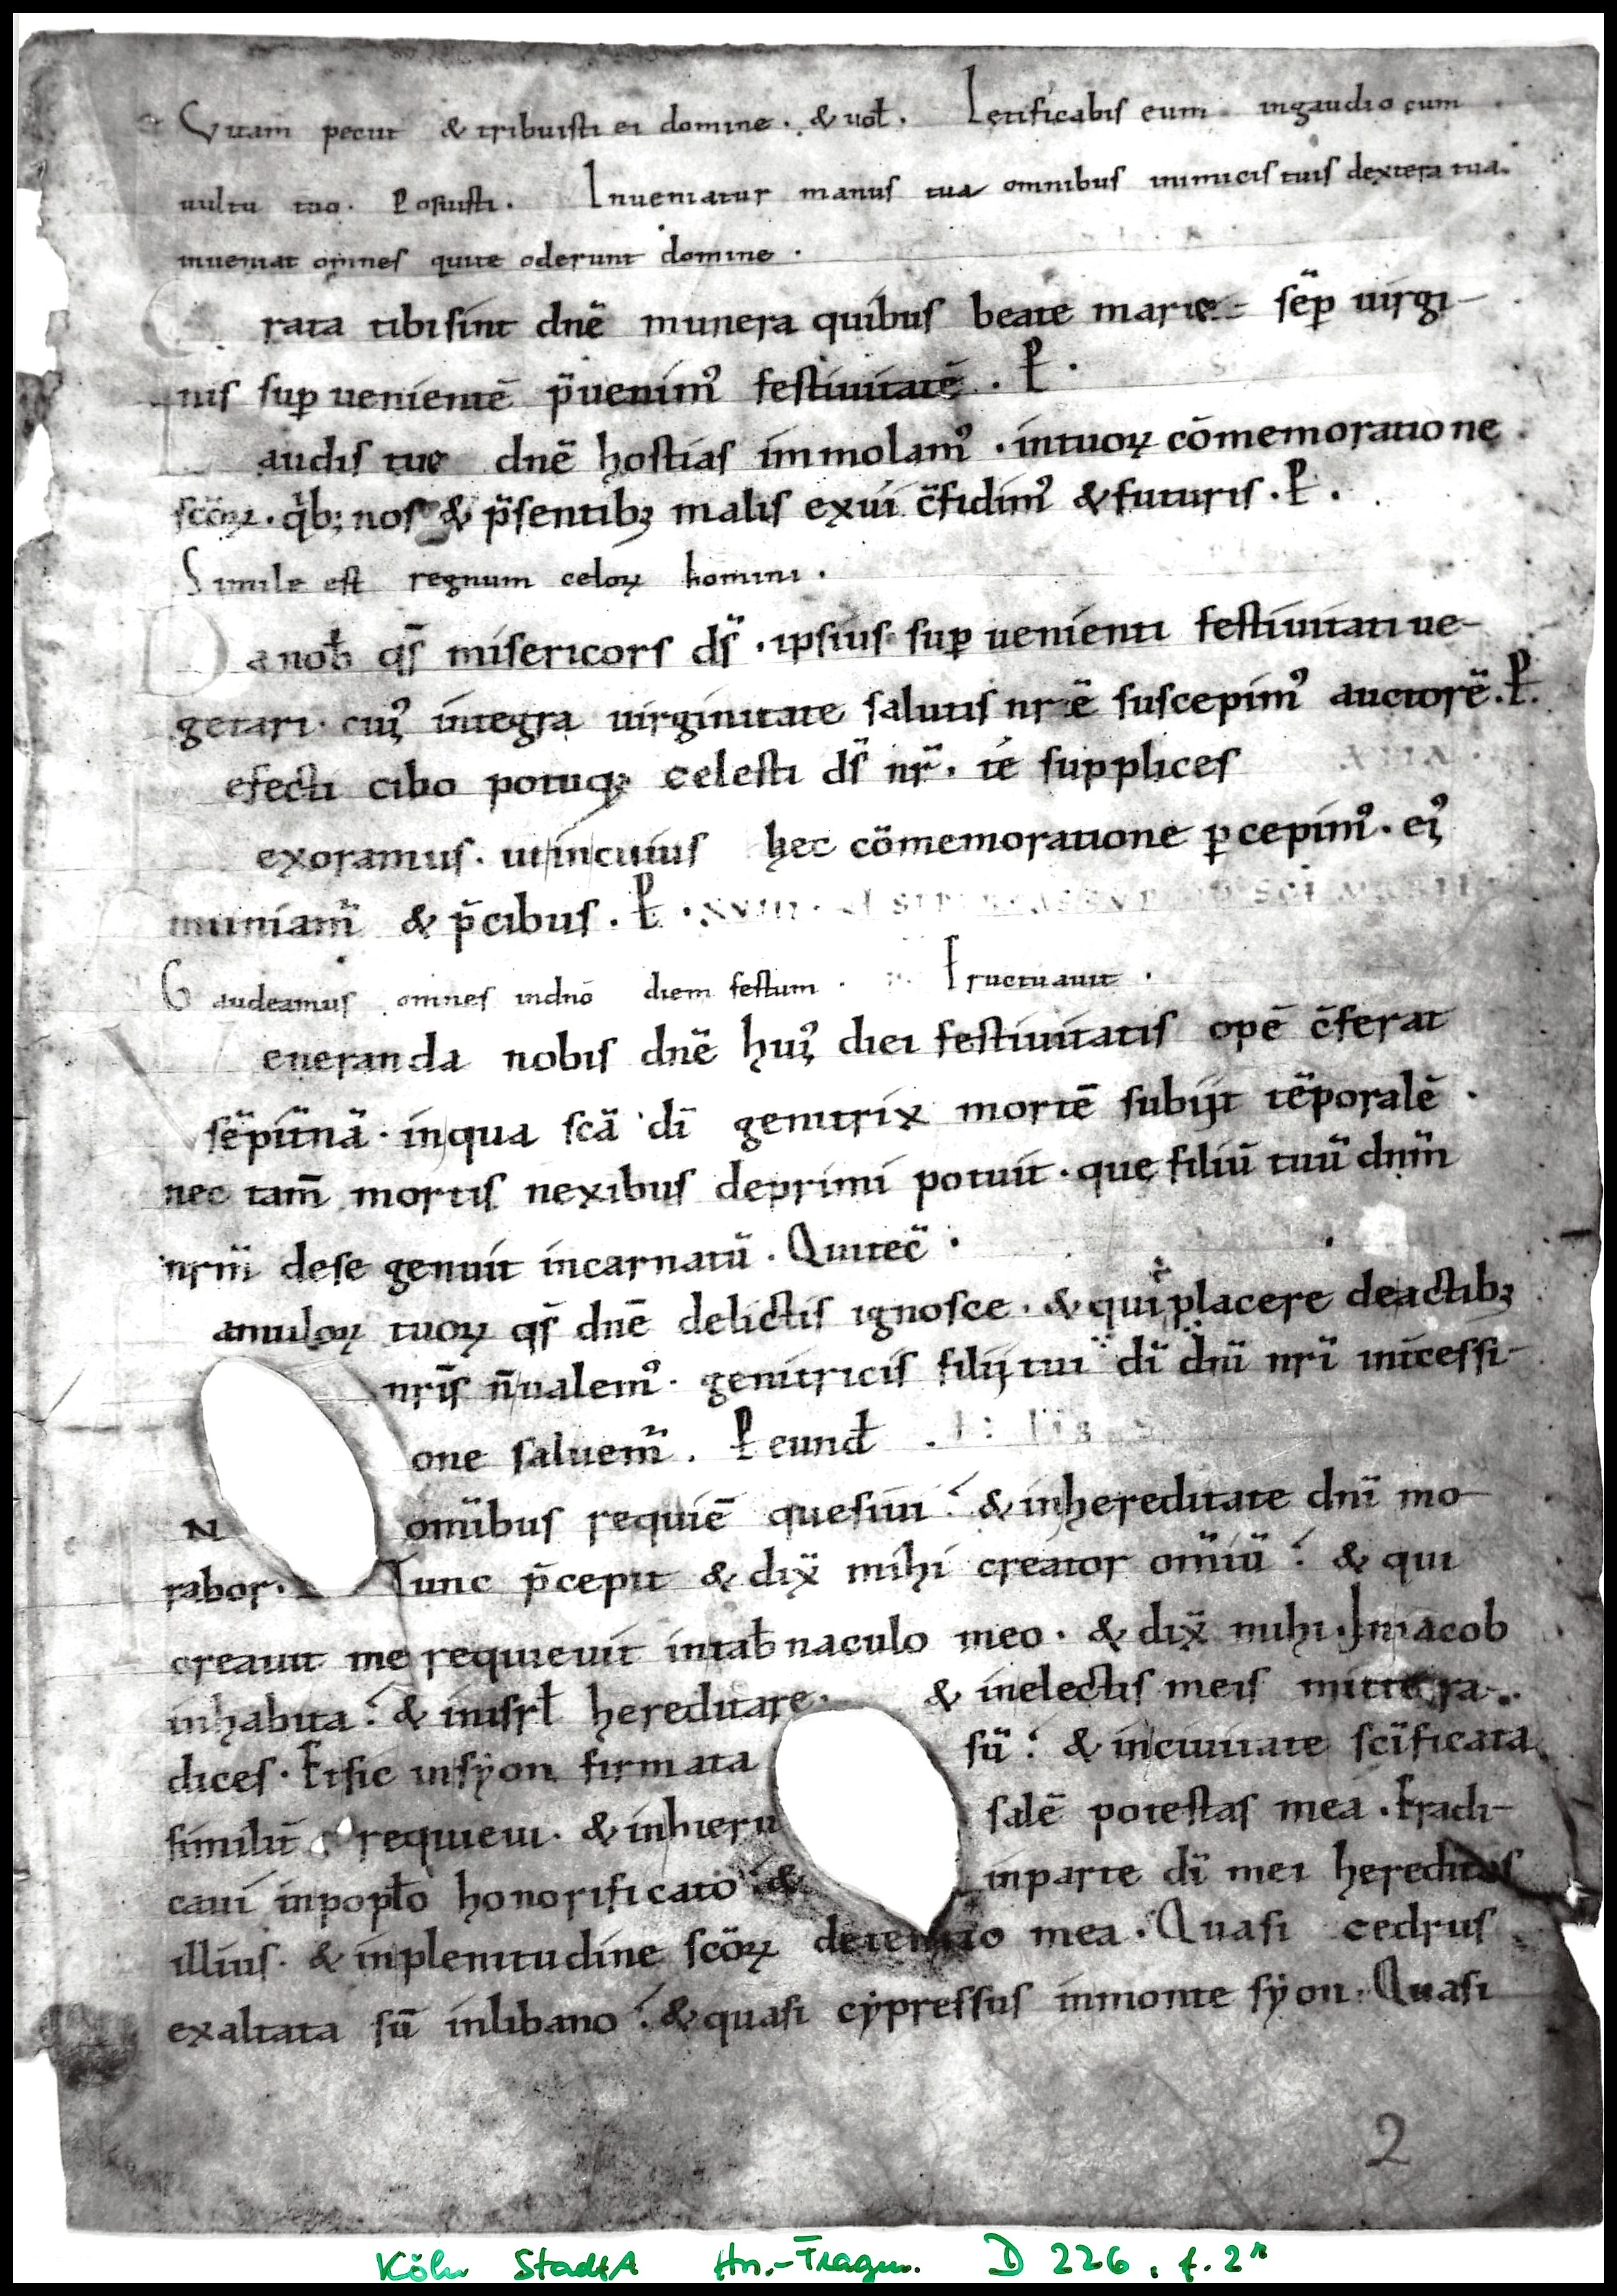 Vitam peciit & tribuisti ei domine. & uoł. Letificabis eum ingaudio cum
uultu tuo. Posuisti. Inueniatur manus tua omnibus inimicis tuis dextera tua
inueniat omnes quite oderunt domine.
rata tibi sint dnē munera quibus beate marię sēp uirgi-
nis sup uenientē p̄uenim᷒ festiuitatē. P̱.
audis tuę dnē hostias immolam᷒. intuoꝝ cōmemoratione
scōꝝ. qͥb; nos & p̄sentibꝫ malis exui c̄fidim᷒ & futuris. P̱.
Simile est regnum celoꝝ homini.
Da nob̄ qs̄ misericors ds̄. ipsius sup uenienti festiuitati ue-
getari. cui᷒ integra uirginitate salutis nr̄ę suscepim᷒ auctorē. P̱.
efecti cibo potuqꝫ celesti ds̄ nr̄. té supplices
exoramus. ut incuius hęc cōmemoratione ꝑcepim᷒. ei᷒
muniam̄ & p̄cibus. P̱. XVIII.
Gaudeamus omnes indnō diem festum. Eructuauit.
Veneranda nobis dnē hui᷒ diei festiuitatis opē c̄ferat
sēpit̄nā. inqua scā dī genitrix mortē subijt tēporalē.
nec tam̄ mortis nexibus deprimi potuit. que filiū tuū dnm̄
nrm̄ dese genuit incarnatū. Quitec̄.
amuloꝝ tuoꝝ qs̄ dnē delictis ignosce. & qui placere deactibꝫ
nrīs n̄ ualem᷒. genitricis filij tui dī dnī nrī int̄cessi-
one saluem̄. P̱ eund̄
N omībus requiē quesiui. & inhereditate dnī mo-
rabor. Tunc p̄cepit & dix̄ mihi creator omīū. & qui
creauit me requieuit intab̄naculo meo. & dix̄ mihi. Iniacob
inhabita. & inisrł hereditare. & inelectis meis mitte ra-
dices. Et sic insyon firmata sū. & inciuitate scīficata
similit̄ requieui. & inhieru salē potestas mea. Et radi-
caui inpopło honorificato. & inparte dī mei hereditas
illius. & inplenitudine scōꝝ detentio mea. Quasi cedrus
exaltata sū inlibano. & quasi cypressus inmonte syon. Quasi
2
Köln StadtA Hn.-Fragm. D 226, f. 2r